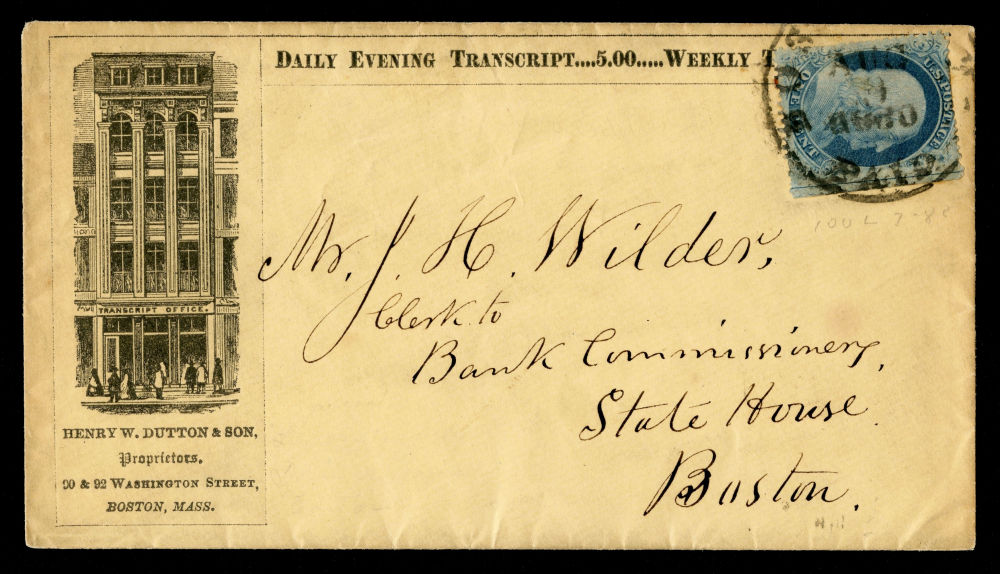 DAILY EVENING TRANSCRIPT....5.00.....WEEKLY T
U.S. POSTAGE
ONE
AUG
PAID
TRANSCRIPT OFFICE.
HENRY W. DUTTON & SON,
Proprietors,
90 & 92 WASHINGTON STREET,
BOSTON, MASS.
Mr. J. H. Wilder,
Clerk to
Bank Commissioners,
State House
Boston.